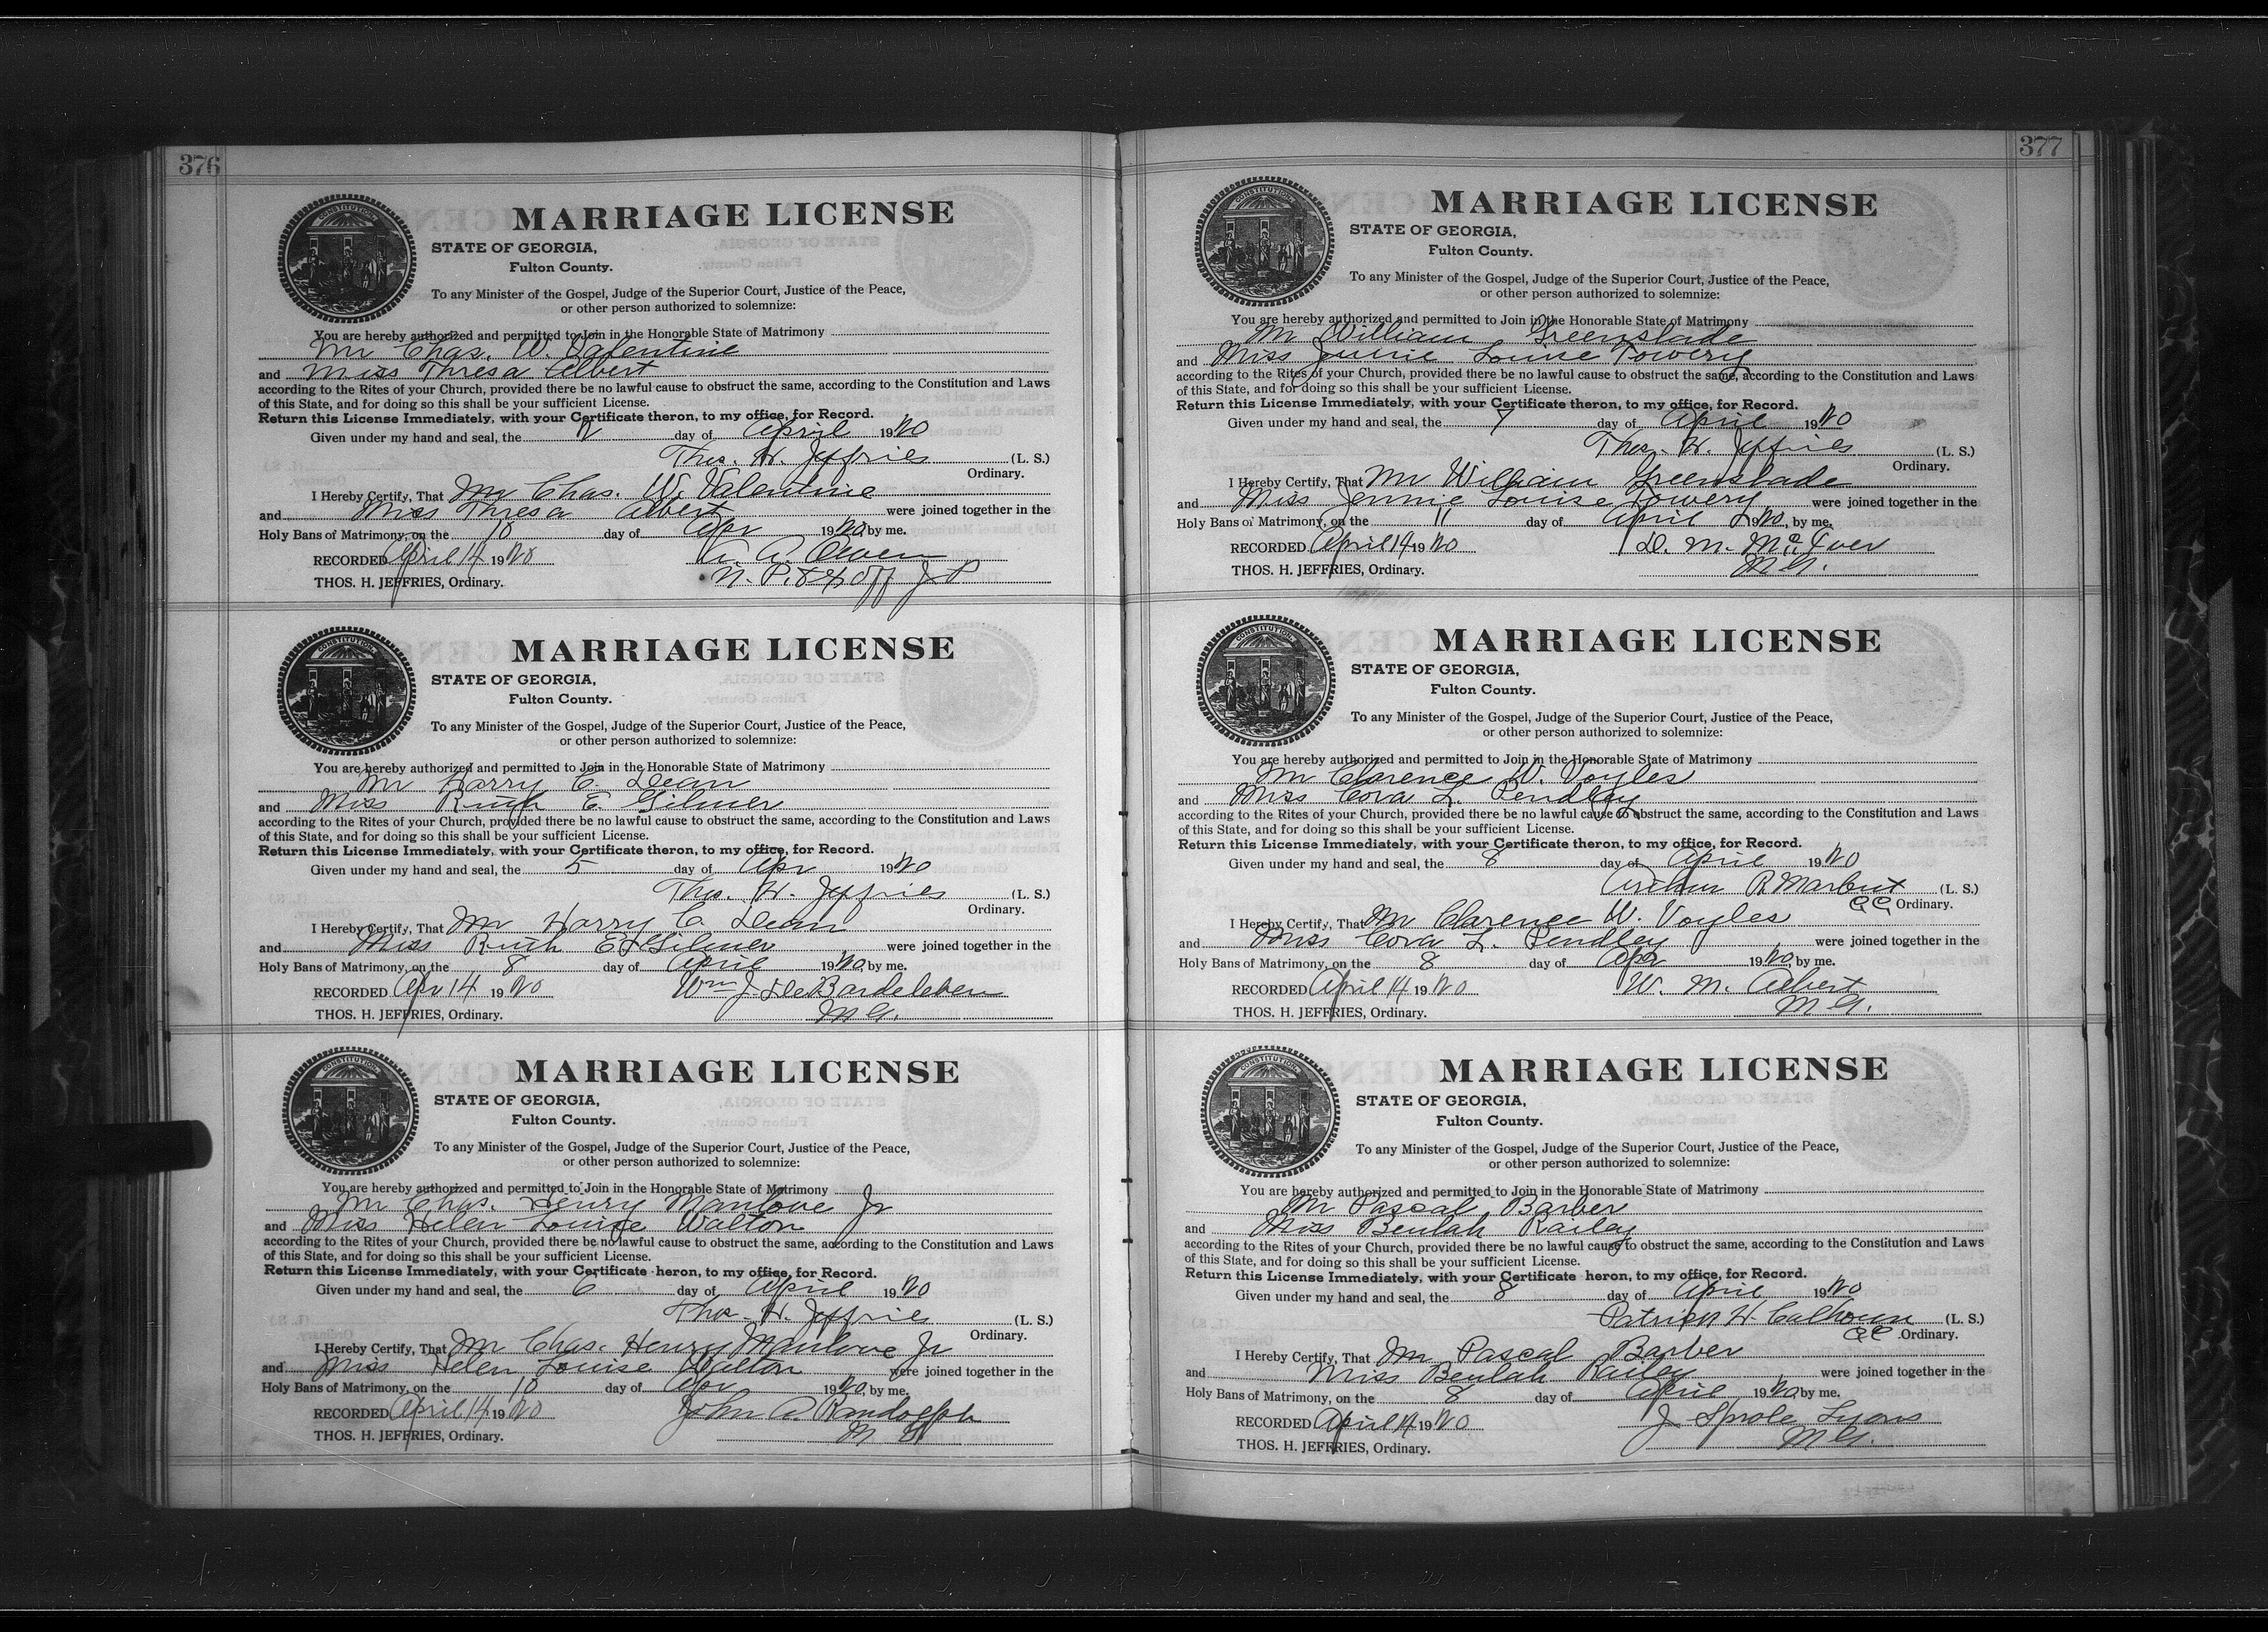 376
MARRIAGE LICENSE
STATE OF GEORGIA,
Fulton County.
To any Minister of the Gospel, Judge of the Superior Court, Justice of the Peace,
or other person authorized to solemnize:
You are hereby authorized and permitted to Join in the Honorable State of Matrimony
Mr Chas. W. Valentine
and Miss Thresa Albert
according to the Rites of your Church, provided there be no lawful cause to obstruct the same, according to the Constitution and Laws
of this State, and for doing so this shall be your sufficient License.
Return this License Immediately, with your Certificate theron, to my office, for Record.
Given under my hand and seal, the 2 day of April 1920
Thos. H. Jeffries (L. S.)
Ordinary.
I Hereby Certify, That Mr Chas. W. Valentine
and Miss Thresa Albert were joined together in the
Holy Bans of Matrimony, on the 10 day of Apr 1920, by me.
RECORDED April 14 1920 Owen
THOS. H. JEFFRIES, Ordinary. N. P. & Ex off J P
MARRIAGE LICENSE
STATE OF GEORGIA,
Fulton County.
To any Minister of the Gospel, Judge of the Superior Court, Justice of the Peace,
or other person authorized to solemnize:
You are hereby authorized and permitted to Join in the Honorable State of Matrimony
Mr Harry C. Dean
and Miss Ruth E. Gilmer
according to the Rites of your Church, provided there be no lawful cause to obstruct the same, according to the Constitution and Laws
of this State, and for doing so this shall be your sufficient License.
Return this License Immediately, with your Certificate theron, to my office, for Record.
Given under my hand and seal, the 5 day of Apr 1920
Thos. H. Jeffries (L. S.)
Ordinary.
I Hereby Certify, That Mr Harry C. Dean
and Miss Ruth E. Gilmer were joined together in the
Holy Bans of Matrimony, on the 8 day of April 1920, by me.
RECORDED Apr 14 1920 Wm J. DeBardeleben
THOS. H. JEFFRIES, Ordinary. M G.
MARRIAGE LICENSE
STATE OF GEORGIA,
Fulton County.
To any Minister of the Gospel, Judge of the Superior Court, Justice of the Peace,
or other person authorized to solemnize:
You are hereby authorized and permitted to Join in the Honorable State of Matrimony
Mr Chas. Henry Manlove Jr
and Miss Helen Louise Walton
according to the Rites of your Church, provided there be no lawful cause to obstruct the same, according to the Constitution and Laws
of this State, and for doing so this shall be your sufficient License.
Return this License Immediately, with your Certificate heron, to my office, for Record.
Given under my hand and seal, the 6 day of April 1920
Thos. H. Jeffries (L. S.)
Ordinary.
I Hereby Certify, That Mr Chas. Henry Manlove Jr
and Miss Helen Louise Walton were joined together in the
Holy Bans of Matrimony, on the 10 day of Apr 1920, by me.
RECORDED April 14 1920 John A. Randolph
THOS. H. JEFFRIES, Ordinary. M G
377
MARRIAGE LICENSE
STATE OF GEORGIA,
Fulton County.
To any Minister of the Gospel, Judge of the Superior Court, Justice of the Peace,
or other person authorized to solemnize:
You are hereby authorized and permitted to Join in the Honorable State of Matrimony
Mr William Greenslade
and Miss Jennie Louise Towery
according to the Rites of your Church, provided there be no lawful cause to obstruct the same, according to the Constitution and Laws
of this State, and for doing so this shall be your sufficient License.
Return this License Immediately, with your Certificate theron, to my office, for Record.
Given under my hand and seal, the 7 day of April 1920
Thos. H. Jeffries (L. S.)
Ordinary.
I Hereby Certify, That Mr William Greenslade
and Miss Jennie Louise Towery were joined together in the
Holy Bans of Matrimony, on the 11 day of April 1920, by me.
RECORDED April 14 1920 D. M. McIver
THOS. H. JEFFRIES, Ordinary. M G.
MARRIAGE LICENSE
STATE OF GEORGIA,
Fulton County.
To any Minister of the Gospel, Judge of the Superior Court, Justice of the Peace,
or other person authorized to solemnize:
You are hereby authorized and permitted to Join in the Honorable State of Matrimony
Mr Clarence W. Voyles
and Miss Cora L. Pendley
according to the Rites of your Church, provided there be no lawful cause to obstruct the same, according to the Constitution and Laws
of this State, and for doing so this shall be your sufficient License.
Return this License Immediately, with your Certificate theron, to my office, for Record.
Given under my hand and seal, the 8 day of April 1920
Arthur R. Marbut (L. S.)
CC Ordinary.
I Hereby Certify, That Mr Clarence W. Voyles
and Miss Cora L. Pendley were joined together in the
Holy Bans of Matrimony, on the 8 day of Apr 1920, by me.
RECORDED April 14 1920 W. M. Albert
THOS. H. JEFFRIES, Ordinary. M G.
MARRIAGE LICENSE
STATE OF GEORGIA,
Fulton County.
To any Minister of the Gospel, Judge of the Superior Court, Justice of the Peace,
or other person authorized to solemnize:
You are hereby authorized and permitted to Join in the Honorable State of Matrimony
Mr Pascal Barber
and Miss Beulah Railey
according to the Rites of your Church, provided there be no lawful cause to obstruct the same, according to the Constitution and Laws
of this State, and for doing so this shall be your sufficient License.
Return this License Immediately, with your Certificate heron, to my office, for Record.
Given under my hand and seal, the 8 day of April 1920
Patrick H. Calhoun (L. S.)
CC Ordinary.
I Hereby Certify, That Mr Pascal Barber
and Miss Beulah Railey were joined together in the
Holy Bans of Matrimony, on the 8 day of April 1920, by me.
RECORDED April 14 1920 J Sprole Lyons
THOS. H. JEFFRIES, Ordinary. M G.